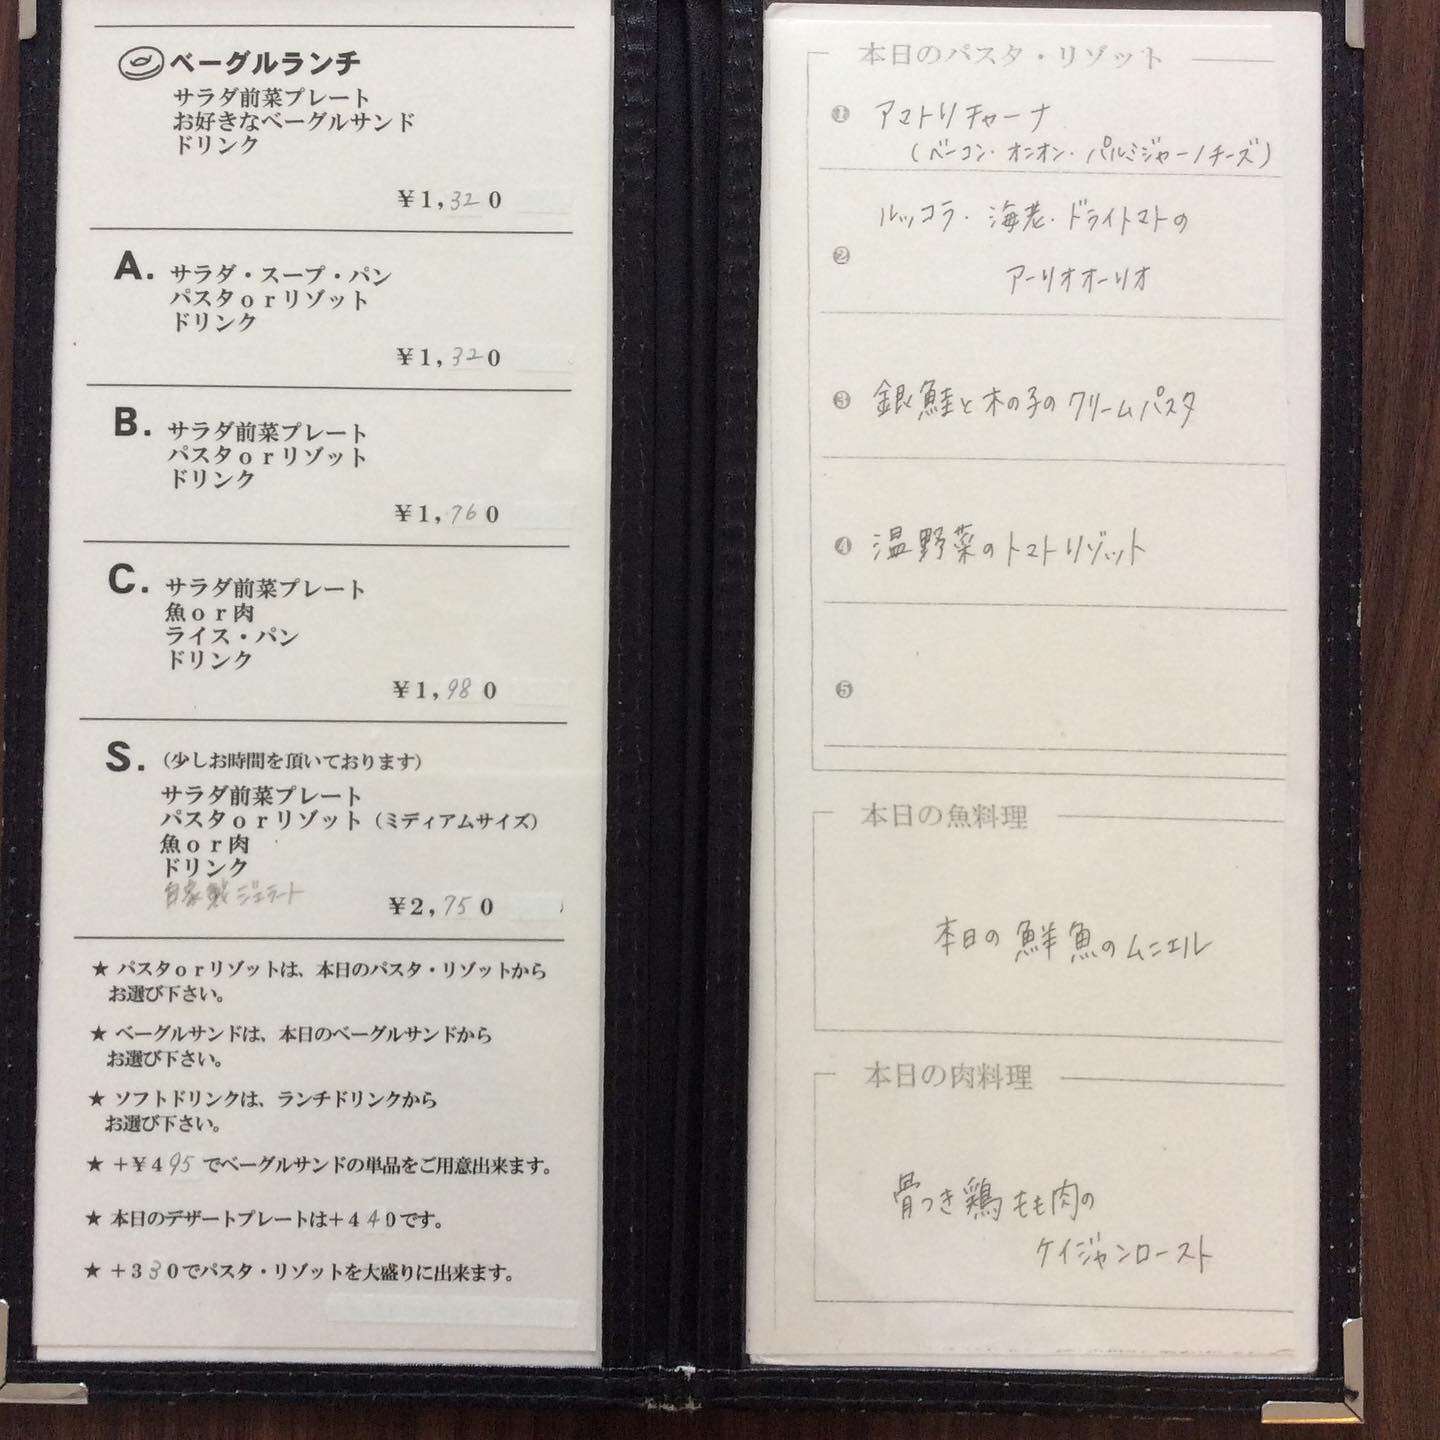 ベーグルランチ
サラダ前菜プレート
お好きなベーグルサンド
ドリンク
¥1,320
A. サラダ・スープ・パン
パスタorリゾット
ドリンク
¥1,320
B. サラダ前菜プレート
パスタorリゾット
ドリンク
¥1,760
C. サラダ前菜プレート
魚or肉
ライス・パン
ドリンク
¥1,980
S. (少しお時間を頂いております)
サラダ前菜プレート
パスタorリゾット(ミディアムサイズ)
魚or肉
ドリンク
自家製ジェラート
¥2,750
★ パスタorリゾットは、本日のパスタ・リゾットから
お選び下さい。
★ ベーグルサンドは、本日のベーグルサンドから
お選び下さい。
★ ソフトドリンクは、ランチドリンクから
お選び下さい。
★ +¥495でベーグルサンドの単品をご用意出来ます。
★ 本日のデザートプレートは+440です。
★ +330でパスタ・リゾットを大盛りに出来ます。
本日のパスタ・リゾット
❶ アマトリチャーナ
(ベーコン・オニオン・パルミジャーノチーズ)
ルッコラ・海老・ドライトマトの
❷
アーリオオーリオ
❸ 銀鮭と木の子のクリームパスタ
❹ 温野菜のトマトリゾット
❺
本日の魚料理
本日の鮮魚のムニエル
本日の肉料理
骨つき鶏もも肉の
ケイジャンロースト